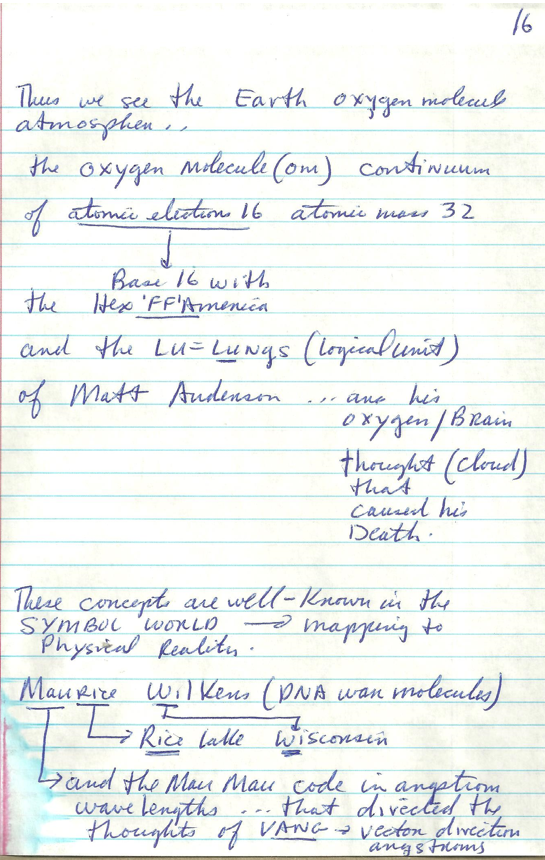 16
Thus we see the Earth oxygen molecul
atmosphen..
the oxygen molecule (om) continuum
of atomic elections 16 atomic mass 32
Base 16 with
the Hex 'FF' America
and the LU = LUNgs (logical unit)
of Matt Anderson ... and his
oxygen/BRAIN
thought (cloud)
that
caused his
Death.
These concepts are well-Known in the
SYMBOL WORLD → mapping to
Physical Reality.
MauRice Wilkens (DNA wan molecules)
Rice Lake Wisconsin
and the Mau Mau code in angstrom
wave lengths ... that directed the
thoughts of VANG → vector direction
angstroms